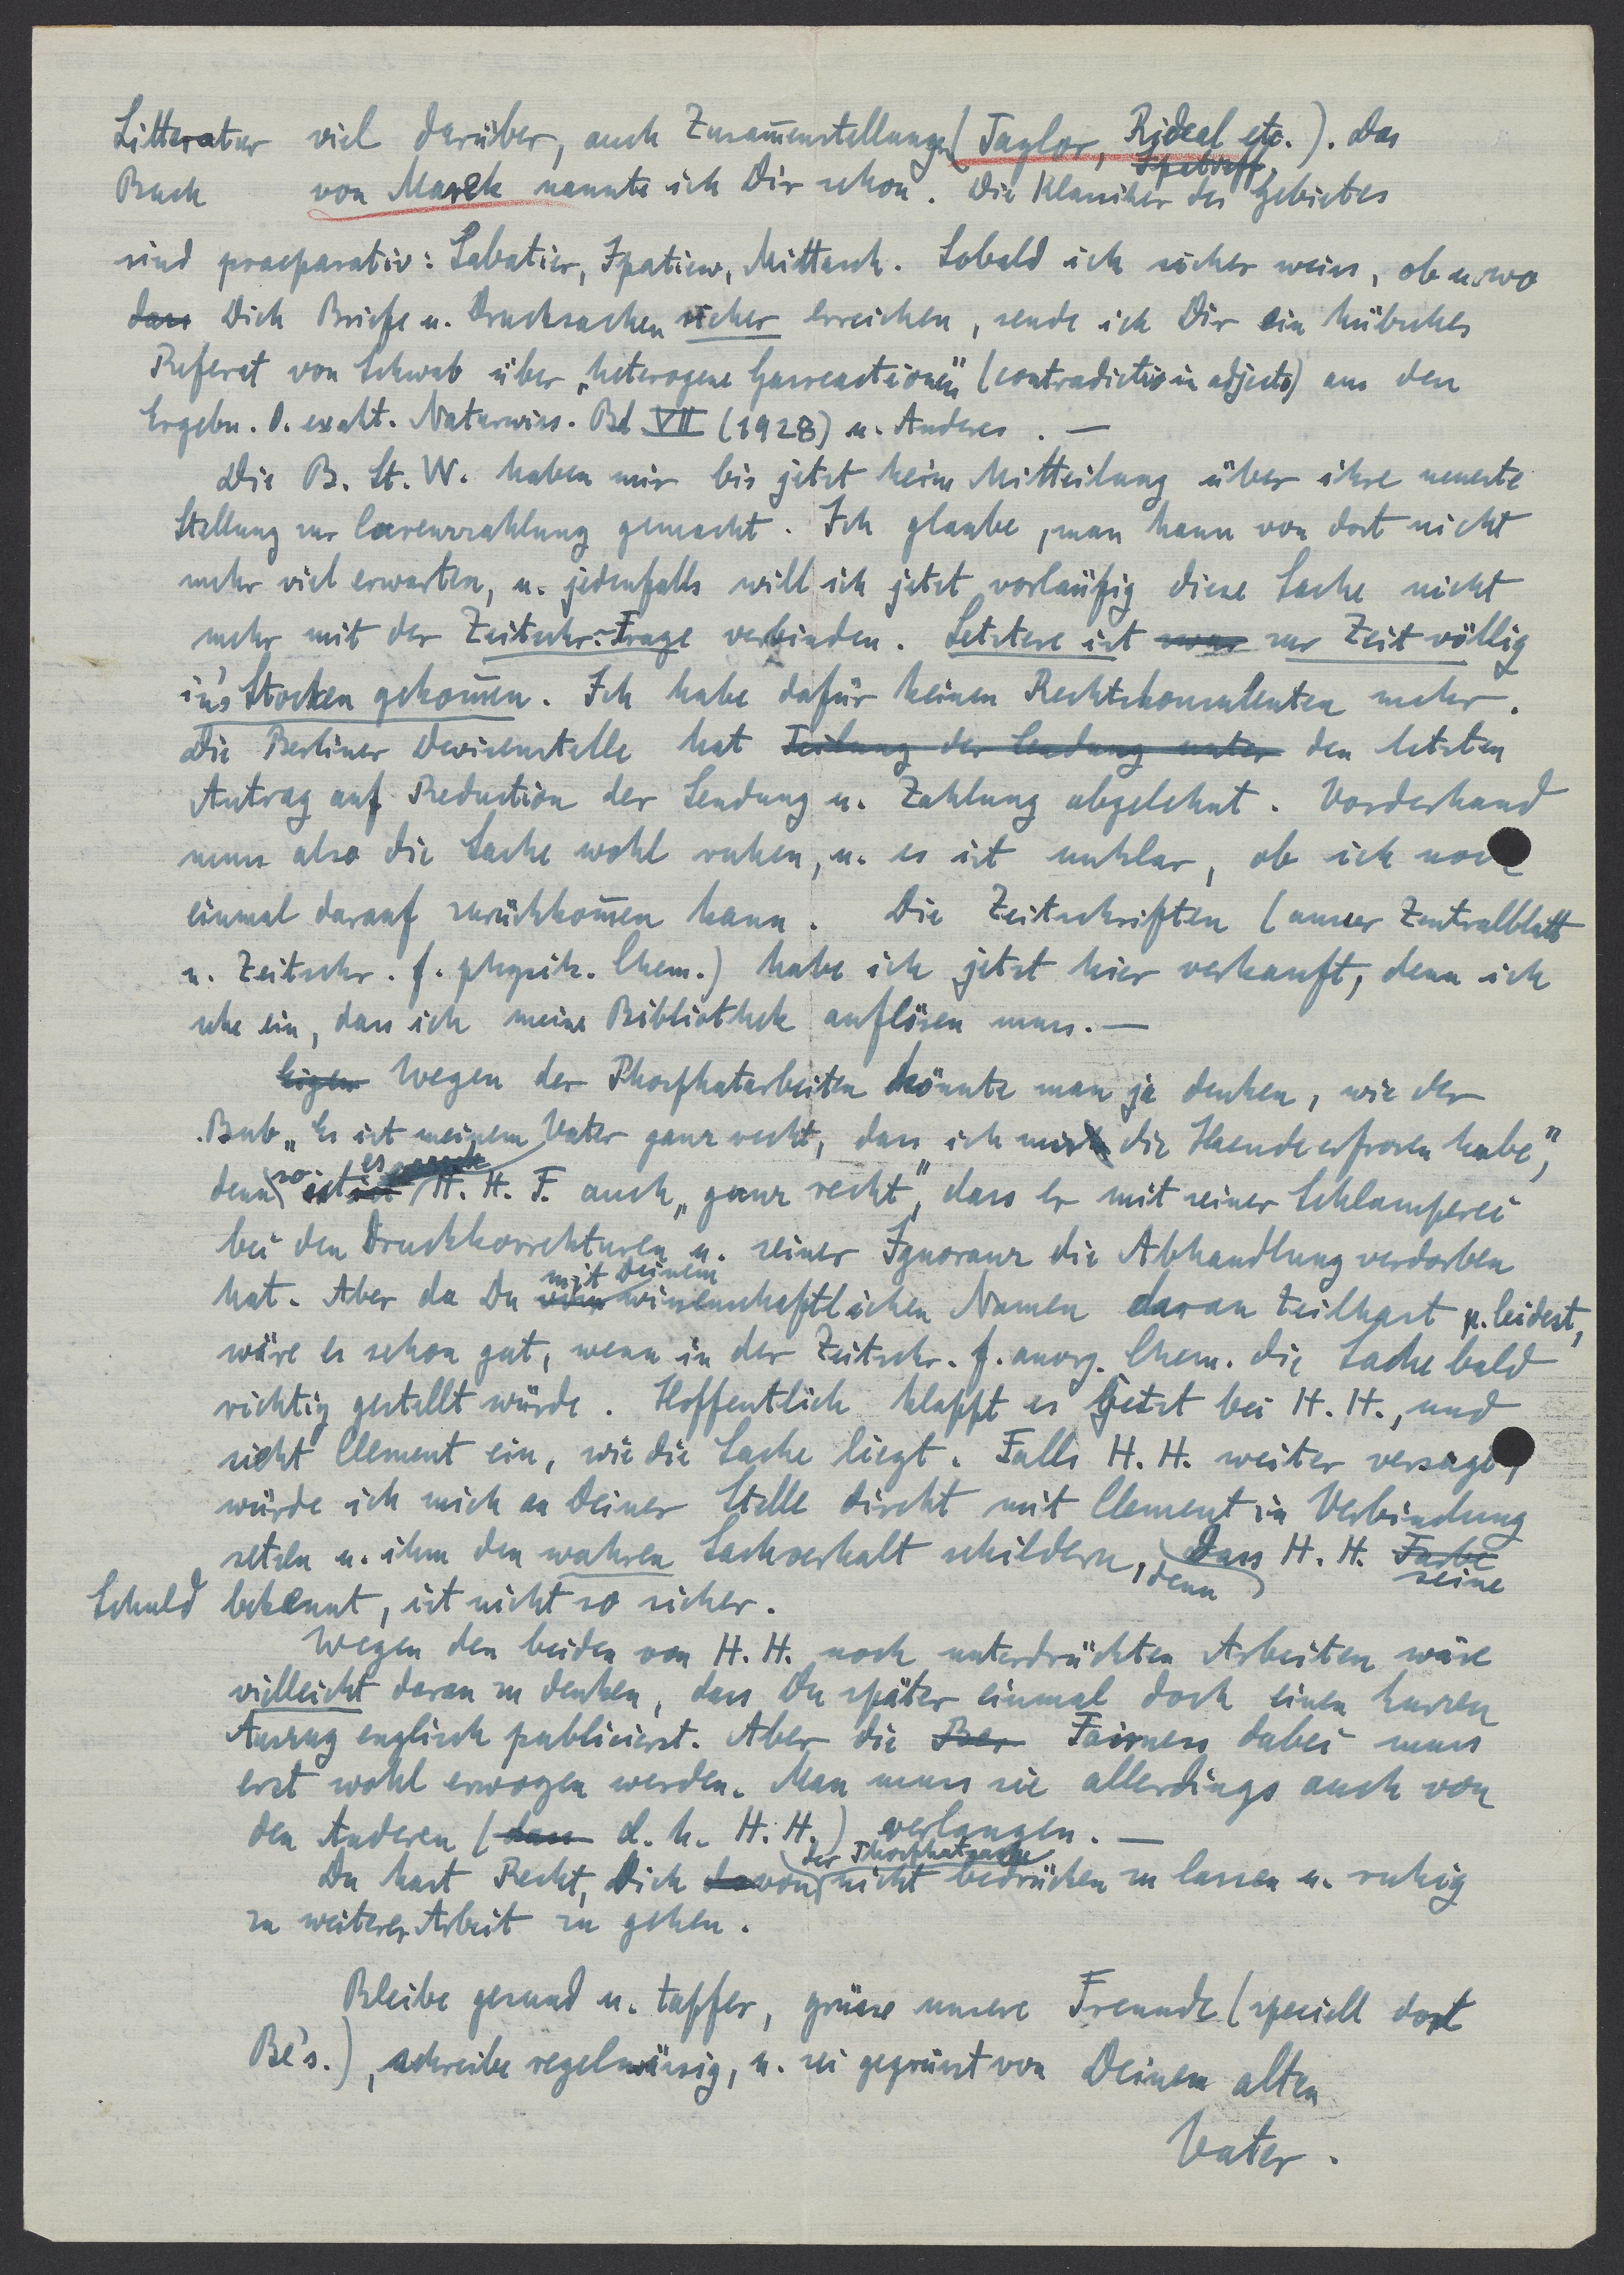 Litteratur viel darüber, auch Zusam̄enstellungen (Taylor, Rideal etc.). Das
Buch von Marek nannte ich Dir schon. Die Klassiker des Gebietes
sind praeparativ: Sabatier, Ipatiew, Mittasch. Sobald ich sicher weiss, ob u. wo
dass Dich Briefe u. Drucksachen sicher erreichen, sende ich Dir ein hübsches
Referat von Schwab über „heterogene Gasreactionen" (contradictio in adjecto) aus den
Ergebn. d. exakt. Naturwiss. Bd VII (1928) u. Anderes. —
Die B. St. W. haben mir bis jetzt keine Mitteilung über ihre neueste
Stellung zur Carenzzahlung gemacht. Ich glaube, man kann von dort nicht
mehr viel erwarten, u. jedenfalls will ich jetzt vorläufig diese Sache nicht
mehr mit der Zeitschr.-Frage verbinden. Letztere ist zwar zur Zeit völlig
in's Stocken gekom̄en. Ich habe dafür keinen Rechtskonsulenten mehr.
Die Berliner Devisenstelle hat Teilung der Sendung unter den letzten
Antrag auf Reduction der Sendung u. Zahlung abgelehnt. Vorderhand
muss also die Sache wohl ruhen, u. es ist unklar, ob ich noch
einmal darauf zurückkom̄en kann. Die Zeitschriften (ausser Zentralblatt
u. Zeitschr. f. physik. Chem.) habe ich jetzt hier verkauft, denn ich
sehe ein, dass ich meine Bibliothek auflösen muss. —
Wegen der Phosphatarbeiten könnte man ja denken, wie der
Bub „Es ist meinem Vater ganz recht, dass ich mir die Haende erfroren habe",
denn so ist es H. H. F. auch „ganz recht", dass er mit seiner Schlamperei
bei den Druckkorrekturen u. seiner Ignoranz die Abhandlung verdorben
hat. Aber da Du mit Deinem wissenschaftlichen Namen daran teilhast u. leidest,
wäre es schon gut, wenn in der Zeitschr. f. anorg. Chem. die Sache bald
richtig gestellt würde. Hoffentlich klappt es jetzt bei H. H., und
sieht Clement ein, wie die Sache liegt. Falls H. H. weiter versagt,
würde ich mich an Deiner Stelle direkt mit Clement in Verbindung
setzen u. ihm den wahren Sachverhalt schildern, denn dass H. H. seine
Schuld bekennt, ist nicht so sicher.
Wegen den beiden von H. H. noch unterdrückten Arbeiten wäre
vielleicht daran zu denken, dass Du später einmal doch einen kurzen
Auszug englisch publicierst. Aber die Ber Fairness dabei muss
erst wohl erwogen werden. Man muss sie allerdings auch von
den Anderen (dass d. h. H. H.) verlangen. —
Du hast Recht, Dich davon der Phosphatsache nicht bedrücken zu lassen u. ruhig
zu weiterer Arbeit zu gehen.
Bleibe gesund u. tapfer, grüsse unsere Freunde (speciell dort
Be's.), schreibe regelmässig, u. sei gegrüsst von Deinem alten
Vater.